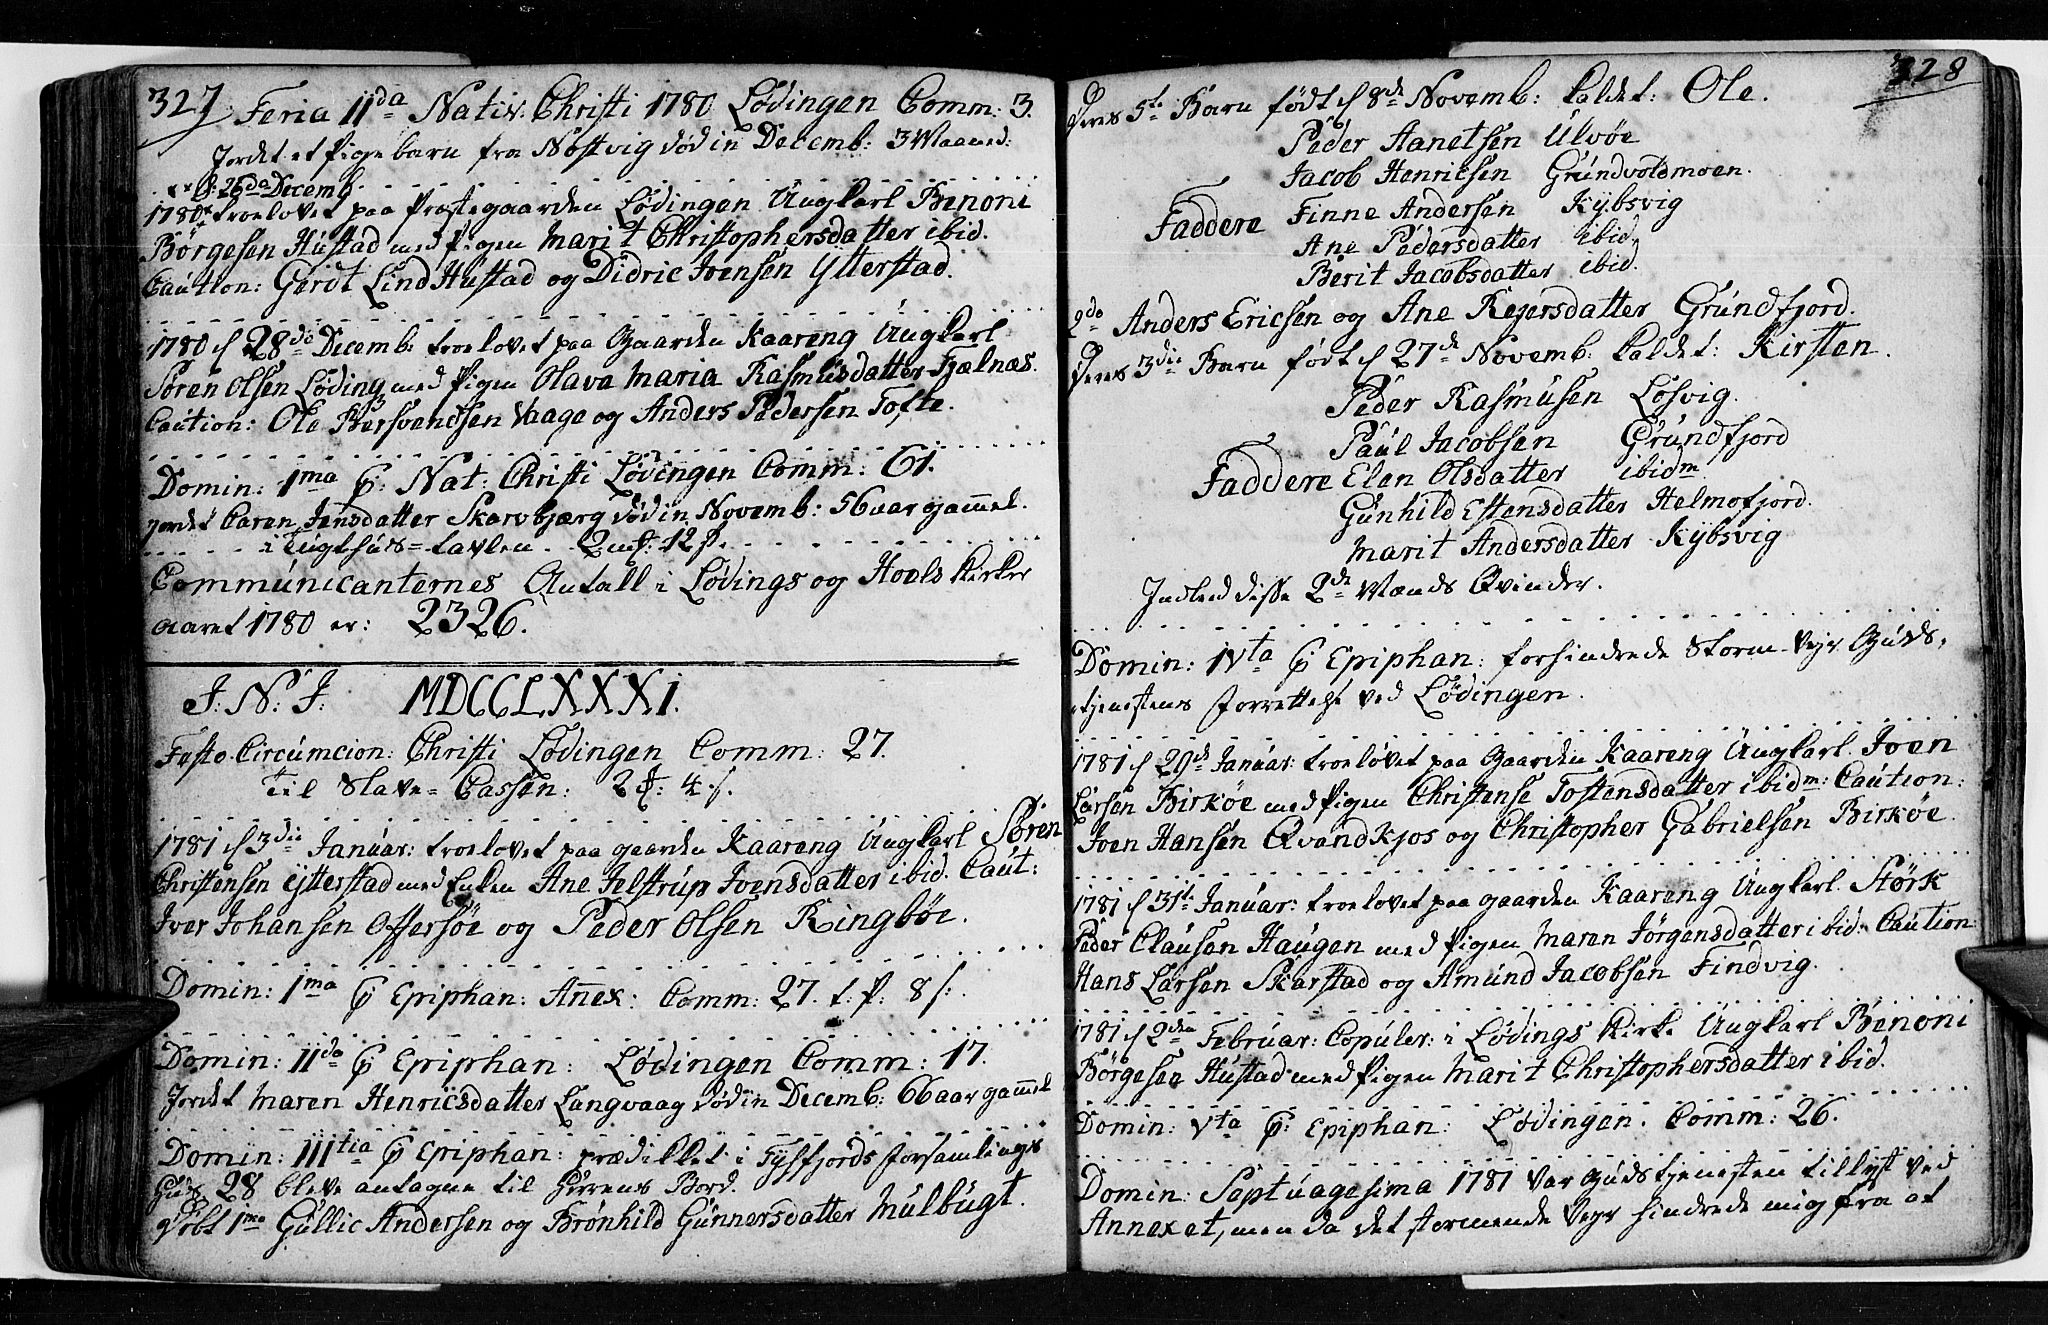 327 Feria IIda Nativ. Christi 1780 Lødingen Comm: 3.
Jordet et Pigebarn fra Nøstvig død in Decemb: 3 Maaned:
d: 26da Decemb
1780 troelovet paa Præstegaarden Lødingen Ungkarl Benoni
Börgesen Hustad med Pigen Marit Christophersdatter ibid.
Caution: Gerdt Lind Hustad og Didric Ivensen Ytterstad.
1780 d 28de Decemb: troelovet paa Gaarden Kaareng Ungkarl
Sören Olsen Löding med Pigen Olava Maria Rasmusdatter Fjælnæs.
Caution: Ole Bersvendsen Vaage og Anders Pedersen Tofte.
Domin: 1ma p. Nat: Christi Lødingen Comm: 61.
jordet Caren Jensdatter Skarvbjærg død in Novemb: 56 aar gammel.
i Tugthuus=tavlen. 2 mk: 12 s.
Communicanternes Antall i Lødings og Hoels Kirker
aaret 1780 er: 2326.
J: N: J: MDCCLXXXI.
Festo Circumcion: Christi Lødingen Comm: 27.
Til Slave=Cassen: 2 mk: 4 s.
1781 d 3die Januar: troelovet paa gaarden Kaareng Ungkarl Sören
Christensen Ytterstad med Enken Ane Jelstrup Ivensdatter ibid. Caut:
Iver Johansen Offersöe og Peder Olsen Ringböe.
Domin: 1ma p Epiphan: Annex: Comm: 27. t. p: 8 s.
Domin: IIda p Epiphan: Lødingen Comm: 17.
Jordet Maren Henricsdatter Langvaag død in Decemb: 66 aar gammel
Domin: IIItia p Epiphan: prædiket i Tysfjords Forsamlings
Huus 28 bleve antagne til Herrens Bord.
Døbt 1mo Gullic Andersen og Brönhild Gunnersdatter Mulbugt.
328
Deres 5te Barn født d 8de Novemb: kaldet: Ole.
Peder Aanetsen Ulvöe
Jacob Henricsen Grundvoldmoen.
Faddere Finne Andersen Kybsvig
Ane Pedersdatter ibid.
Berit Jacobsdatter ibid.
2do Anders Ericsen og Ane Rejersdatter Grundfjord.
Deres 3die Barn født d 27de Novemb: kaldet: Kirsten.
Peder Rasmusen Losvig.
Paul Jacobsen Grundfjord
Faddere Elen Olsdatter ibidm
Gunhild Estensdatter Helmofjord.
Marit Andersdatter Kybsvig
Indled disse 2de Mænds Qvinder.
Domin: IVta p Epiphan: forhindrede Storm-Vejr Guds-
tjenestens Forrettelse ved Lødingen.
1781 d 29de Januar: troelovet paa Gaarden Kaareng Ungkarl Iven
Larsen Birköe med Pigen Christense Tostensdatter ibidm: Caution:
Iven Hansen Qvandkjos og Christopher Gabrielsen Birköe.
1781 d 31te Januar: troelovet paa gaarden Kaareng Ungkarl Störk
Peder Clausen Haugen med Pigen Maren Jörgensdatter ibid: Caution:
Hans Larsen Skarstad og Amund Jacobsen Findvig.
1781 d 2den Februar: Copuler: i Lødings Kirke Ungkarl Benoni
Börgesen Hustad med Pigen Marit Christophersdatter ibid.
Domin: Vta p: Epiphan: Lødingen. Comm: 26.
Domin: Septuagesima 1781 var Gudstjenesten tillyst ved
Annexet, men da det stormende Vejr hindrede mig fra at